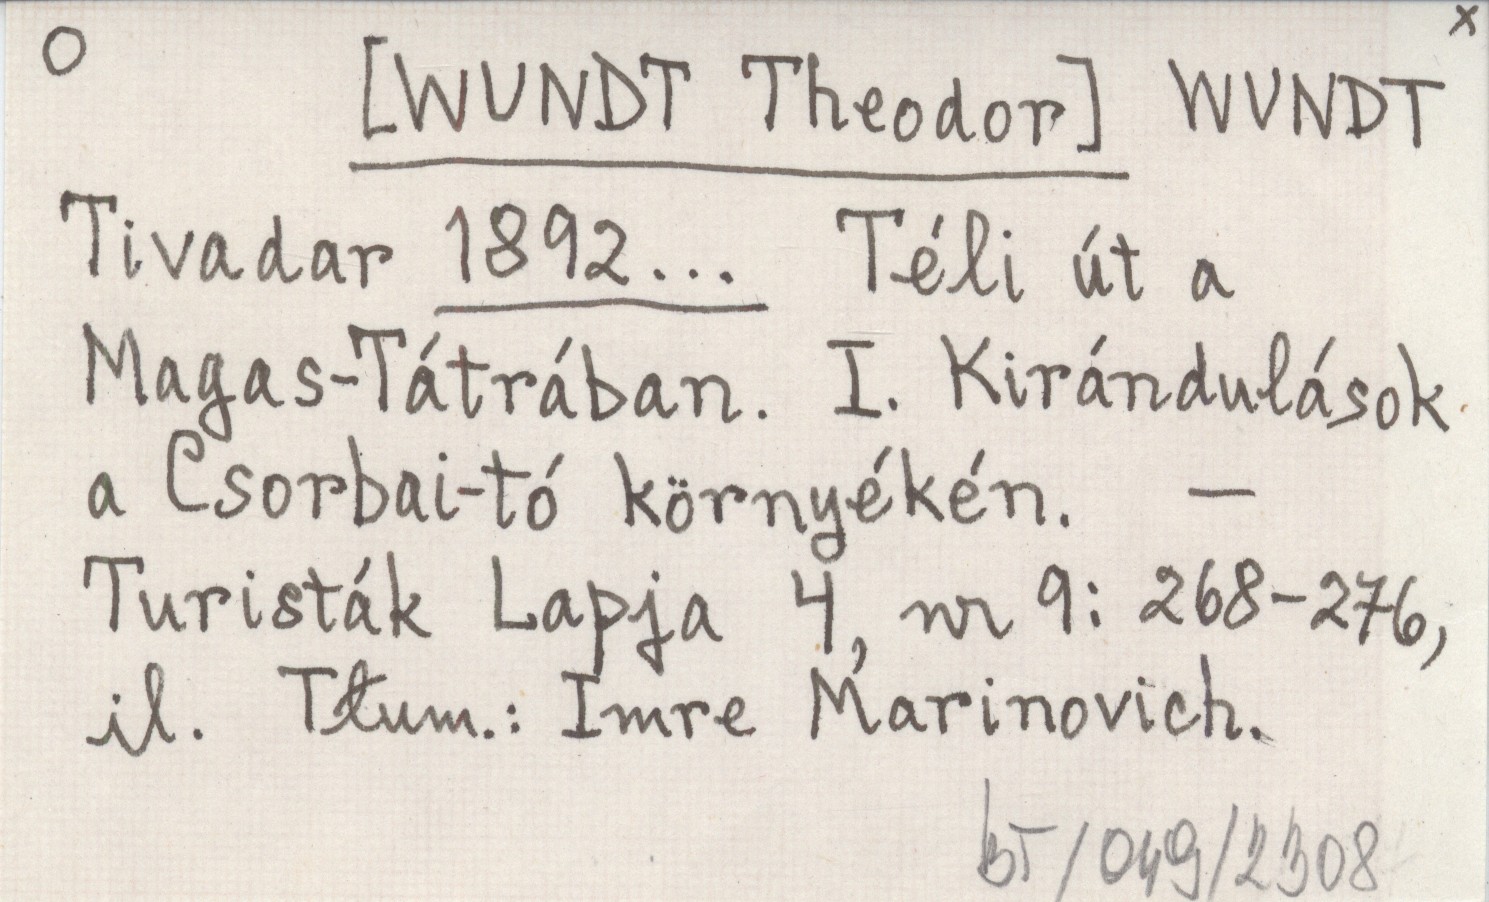 O [WUNDT Theodor] WUNDT x
Tivadar 1892... Téli út a
Magas-Tátrában. I. Kirándulások
a Csorbai-tó környékén. —
Turisták Lapja 4, nr 9: 268-276,
il. Tłum.: Imre Marinovich.
bT/049/2308